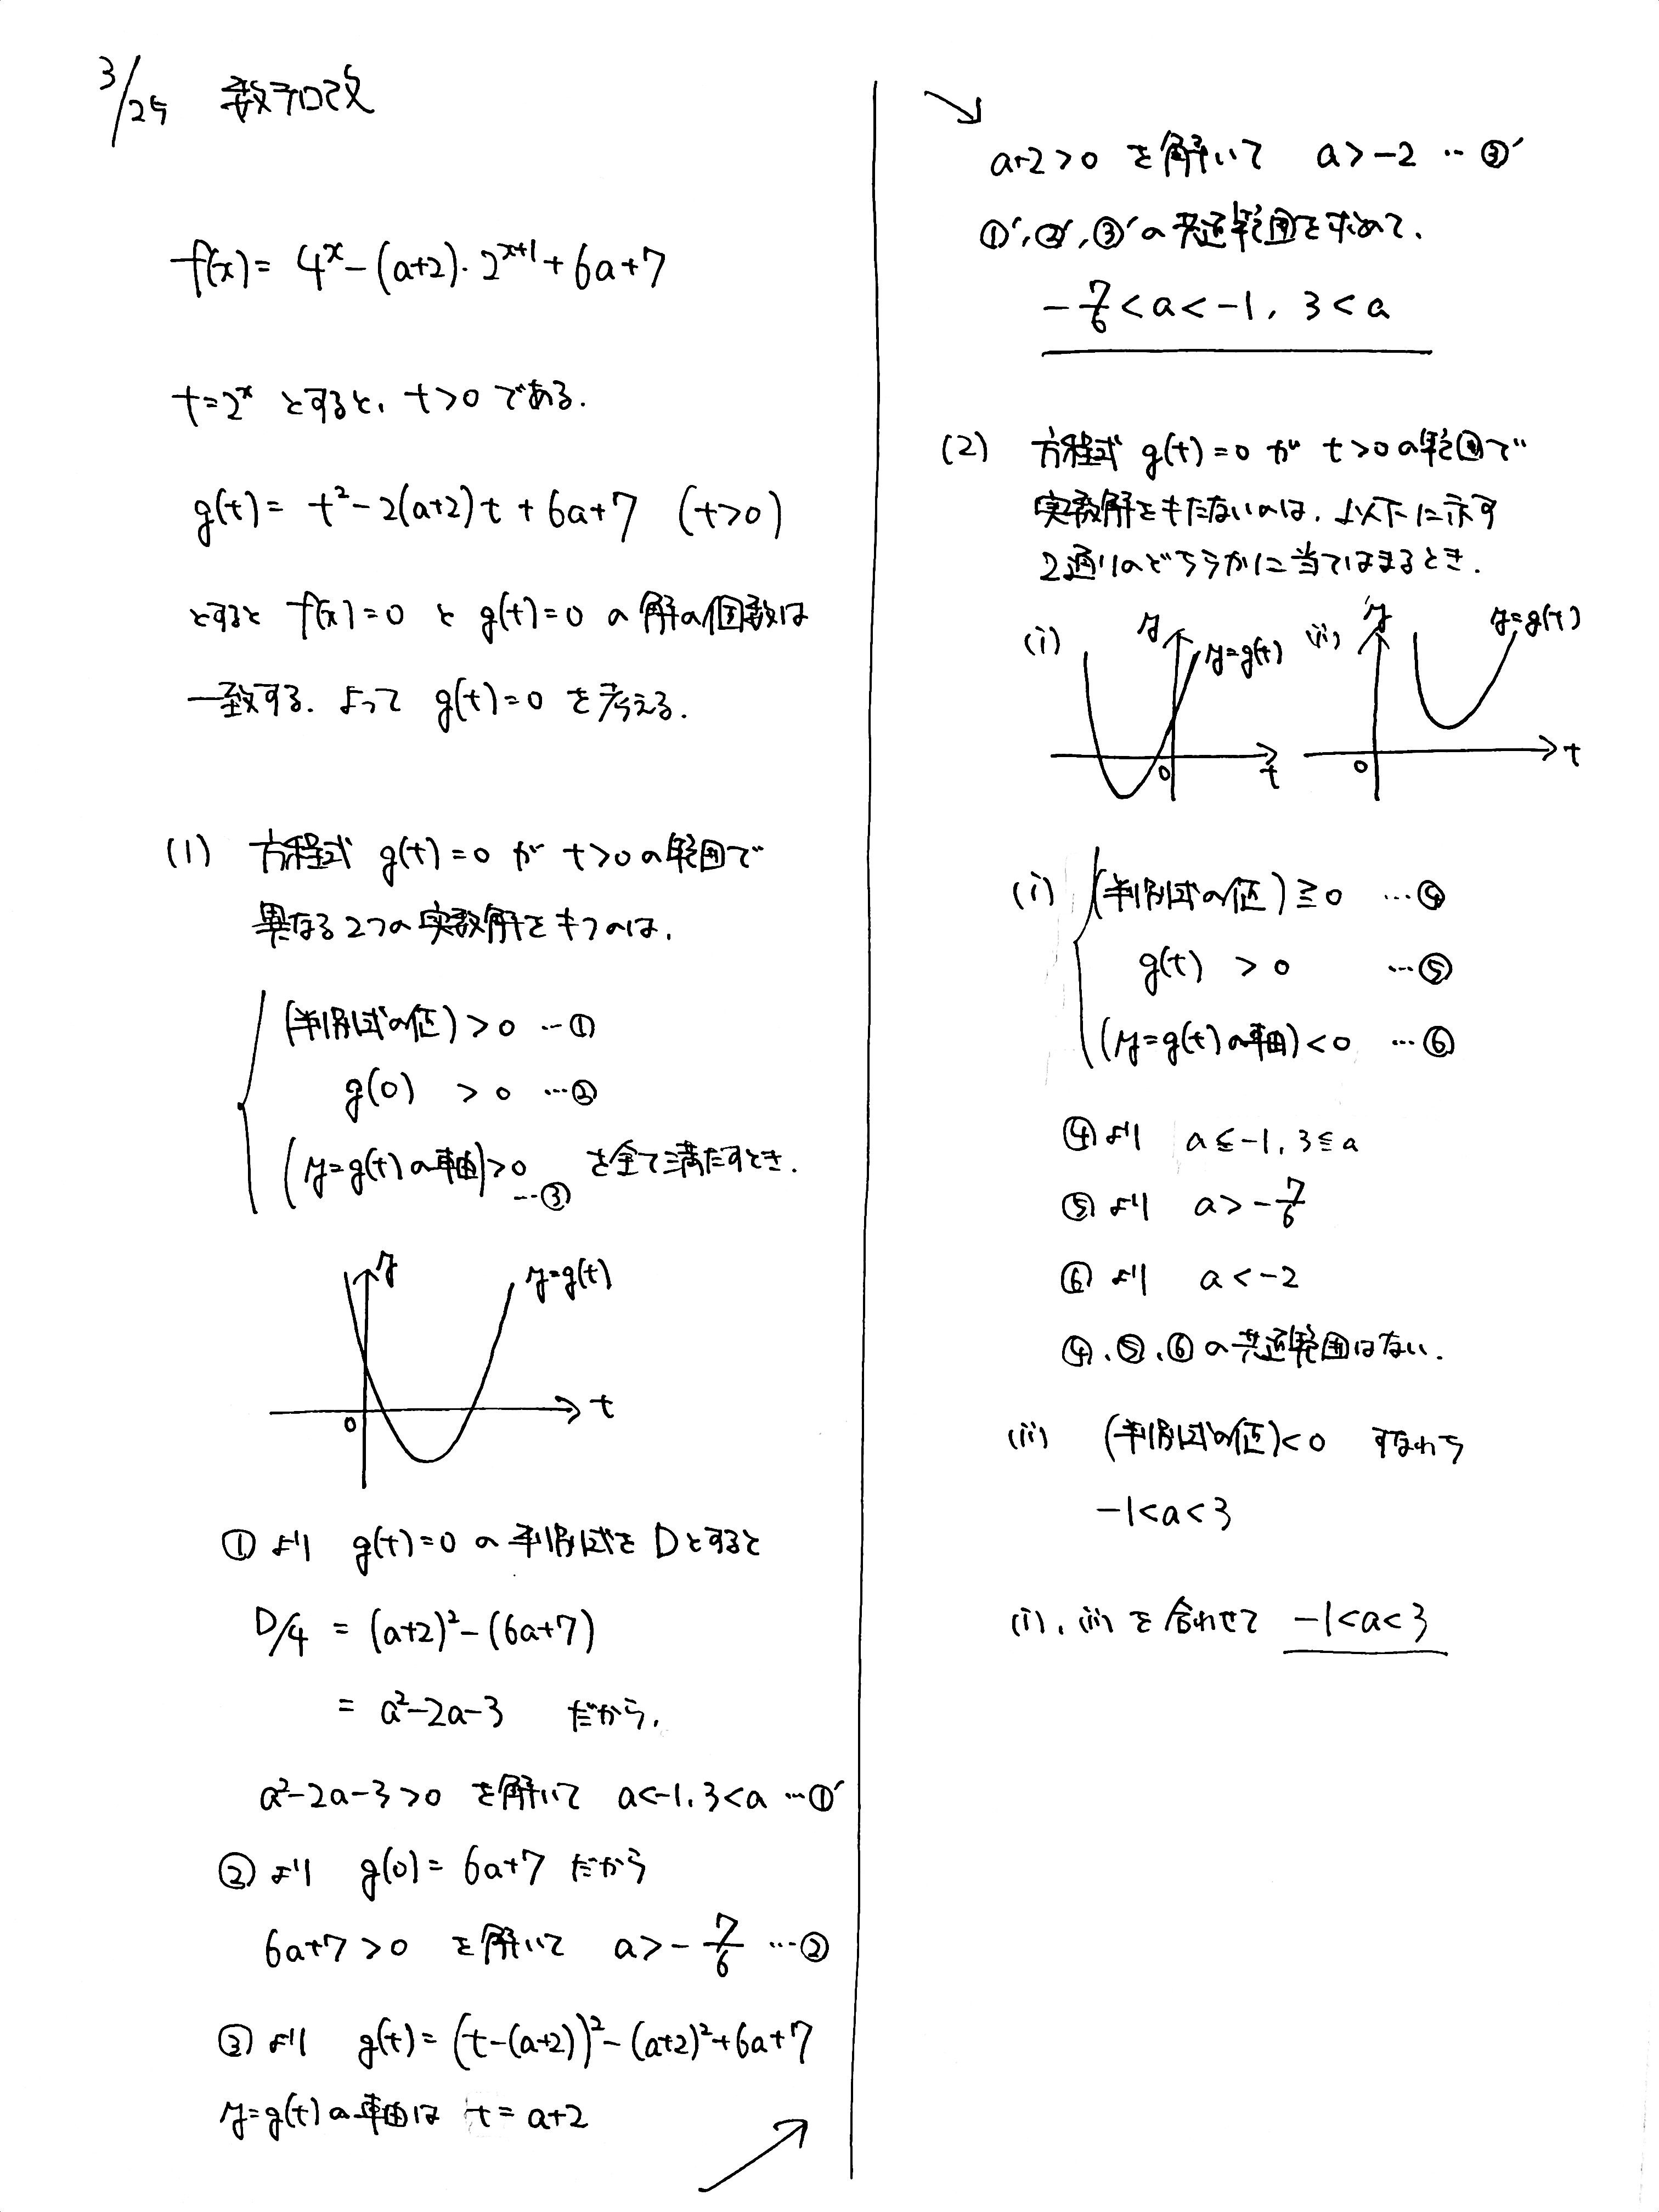 3/25 数学D改
f(x) = 4^x - (a+2)・2^{x+1} + 6a+7
t=2^x とすると、t>0 である.
g(t) = t² - 2(a+2)t + 6a+7 (t>0)
とすると f(x)=0 と g(t)=0 の解の個数は
一致する. よって g(t)=0 を考える.
(1) 方程式 g(t)=0 が t>0 の範囲で
異なる2つの実数解をもつのは,
(判別式の値) > 0 …①
g(0) > 0 …②
(y=g(t)の軸)>0 …③ を全て満たすとき.
y
y=g(t)
t
0
①より g(t)=0 の判別式をDとすると
D/4 = (a+2)² - (6a+7)
= a²-2a-3 だから,
a²-2a-3>0 を解いて a<-1, 3<a …①′
②より g(0) = 6a+7 だから
6a+7>0 を解いて a>-7/6 …②
③より g(t) = (t-(a+2))² - (a+2)² + 6a+7
y=g(t)の軸は t=a+2
a+2>0 を解いて a>-2 …③′
①′,②′,③′の共通範囲を求めて,
-7/6<a<-1, 3<a
(2) 方程式 g(t)=0 が t>0 の範囲で
実数解をもたないのは, 以下に示す
2通りのどちらかに当てはまるとき.
(i) y y=g(t) (ii) y y=g(t)
0 t 0 t
(i) (判別式の値) ≧ 0 …④
g(t) > 0 …⑤
(y=g(t)の軸)<0 …⑥
④より a≦-1, 3≦a
⑤より a>-7/6
⑥より a<-2
④,⑤,⑥の共通範囲はない.
(ii) (判別式の値)<0 すなわち
-1<a<3
(i), (ii) を合わせて -1<a<3